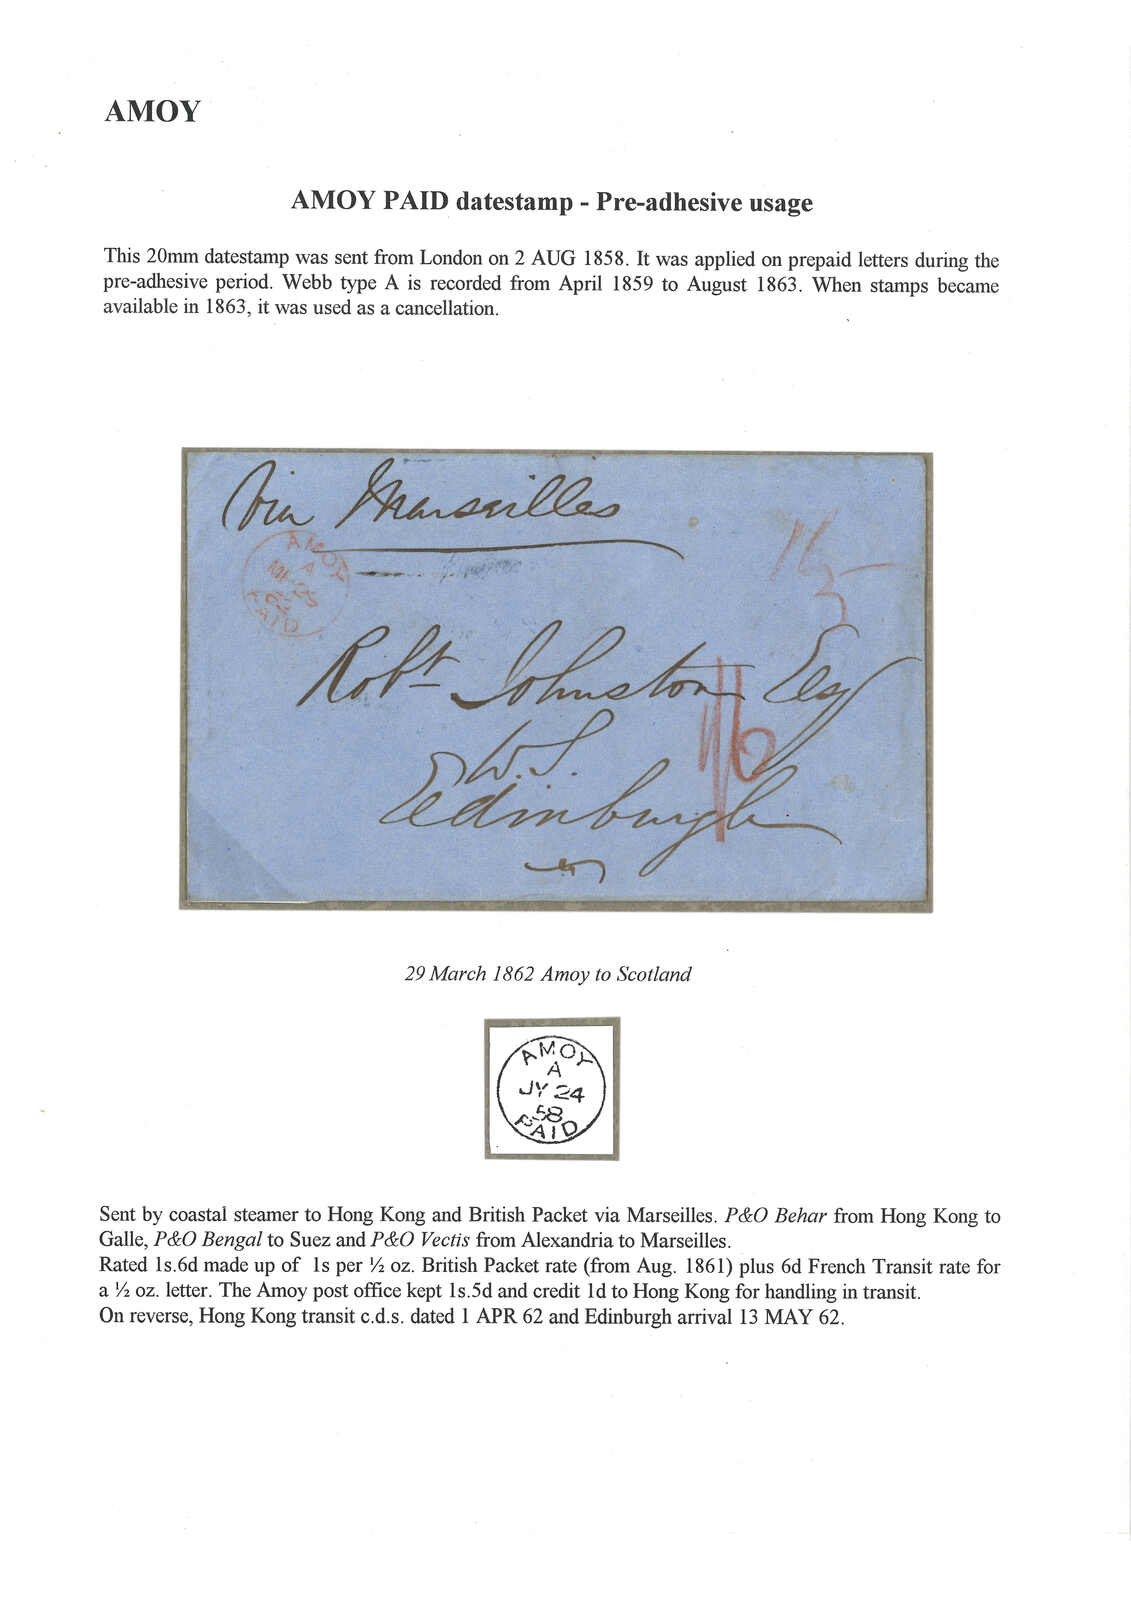 AMOY
AMOY PAID datestamp - Pre-adhesive usage
This 20mm datestamp was sent from London on 2 AUG 1858. It was applied on prepaid letters during the
pre-adhesive period. Webb type A is recorded from April 1859 to August 1863. When stamps became
available in 1863, it was used as a cancellation.
Via Marseilles
AMOY
A
MR 29
62
PAID
1/5
Robt Johnston Esq
1/6
W.S.
Edinburgh
29 March 1862 Amoy to Scotland
AMOY
A
JY 24
58
PAID
Sent by coastal steamer to Hong Kong and British Packet via Marseilles. P&O Behar from Hong Kong to
Galle, P&O Bengal to Suez and P&O Vectis from Alexandria to Marseilles.
Rated 1s.6d made up of 1s per ½ oz. British Packet rate (from Aug. 1861) plus 6d French Transit rate for
a ½ oz. letter. The Amoy post office kept 1s.5d and credit 1d to Hong Kong for handling in transit.
On reverse, Hong Kong transit c.d.s. dated 1 APR 62 and Edinburgh arrival 13 MAY 62.